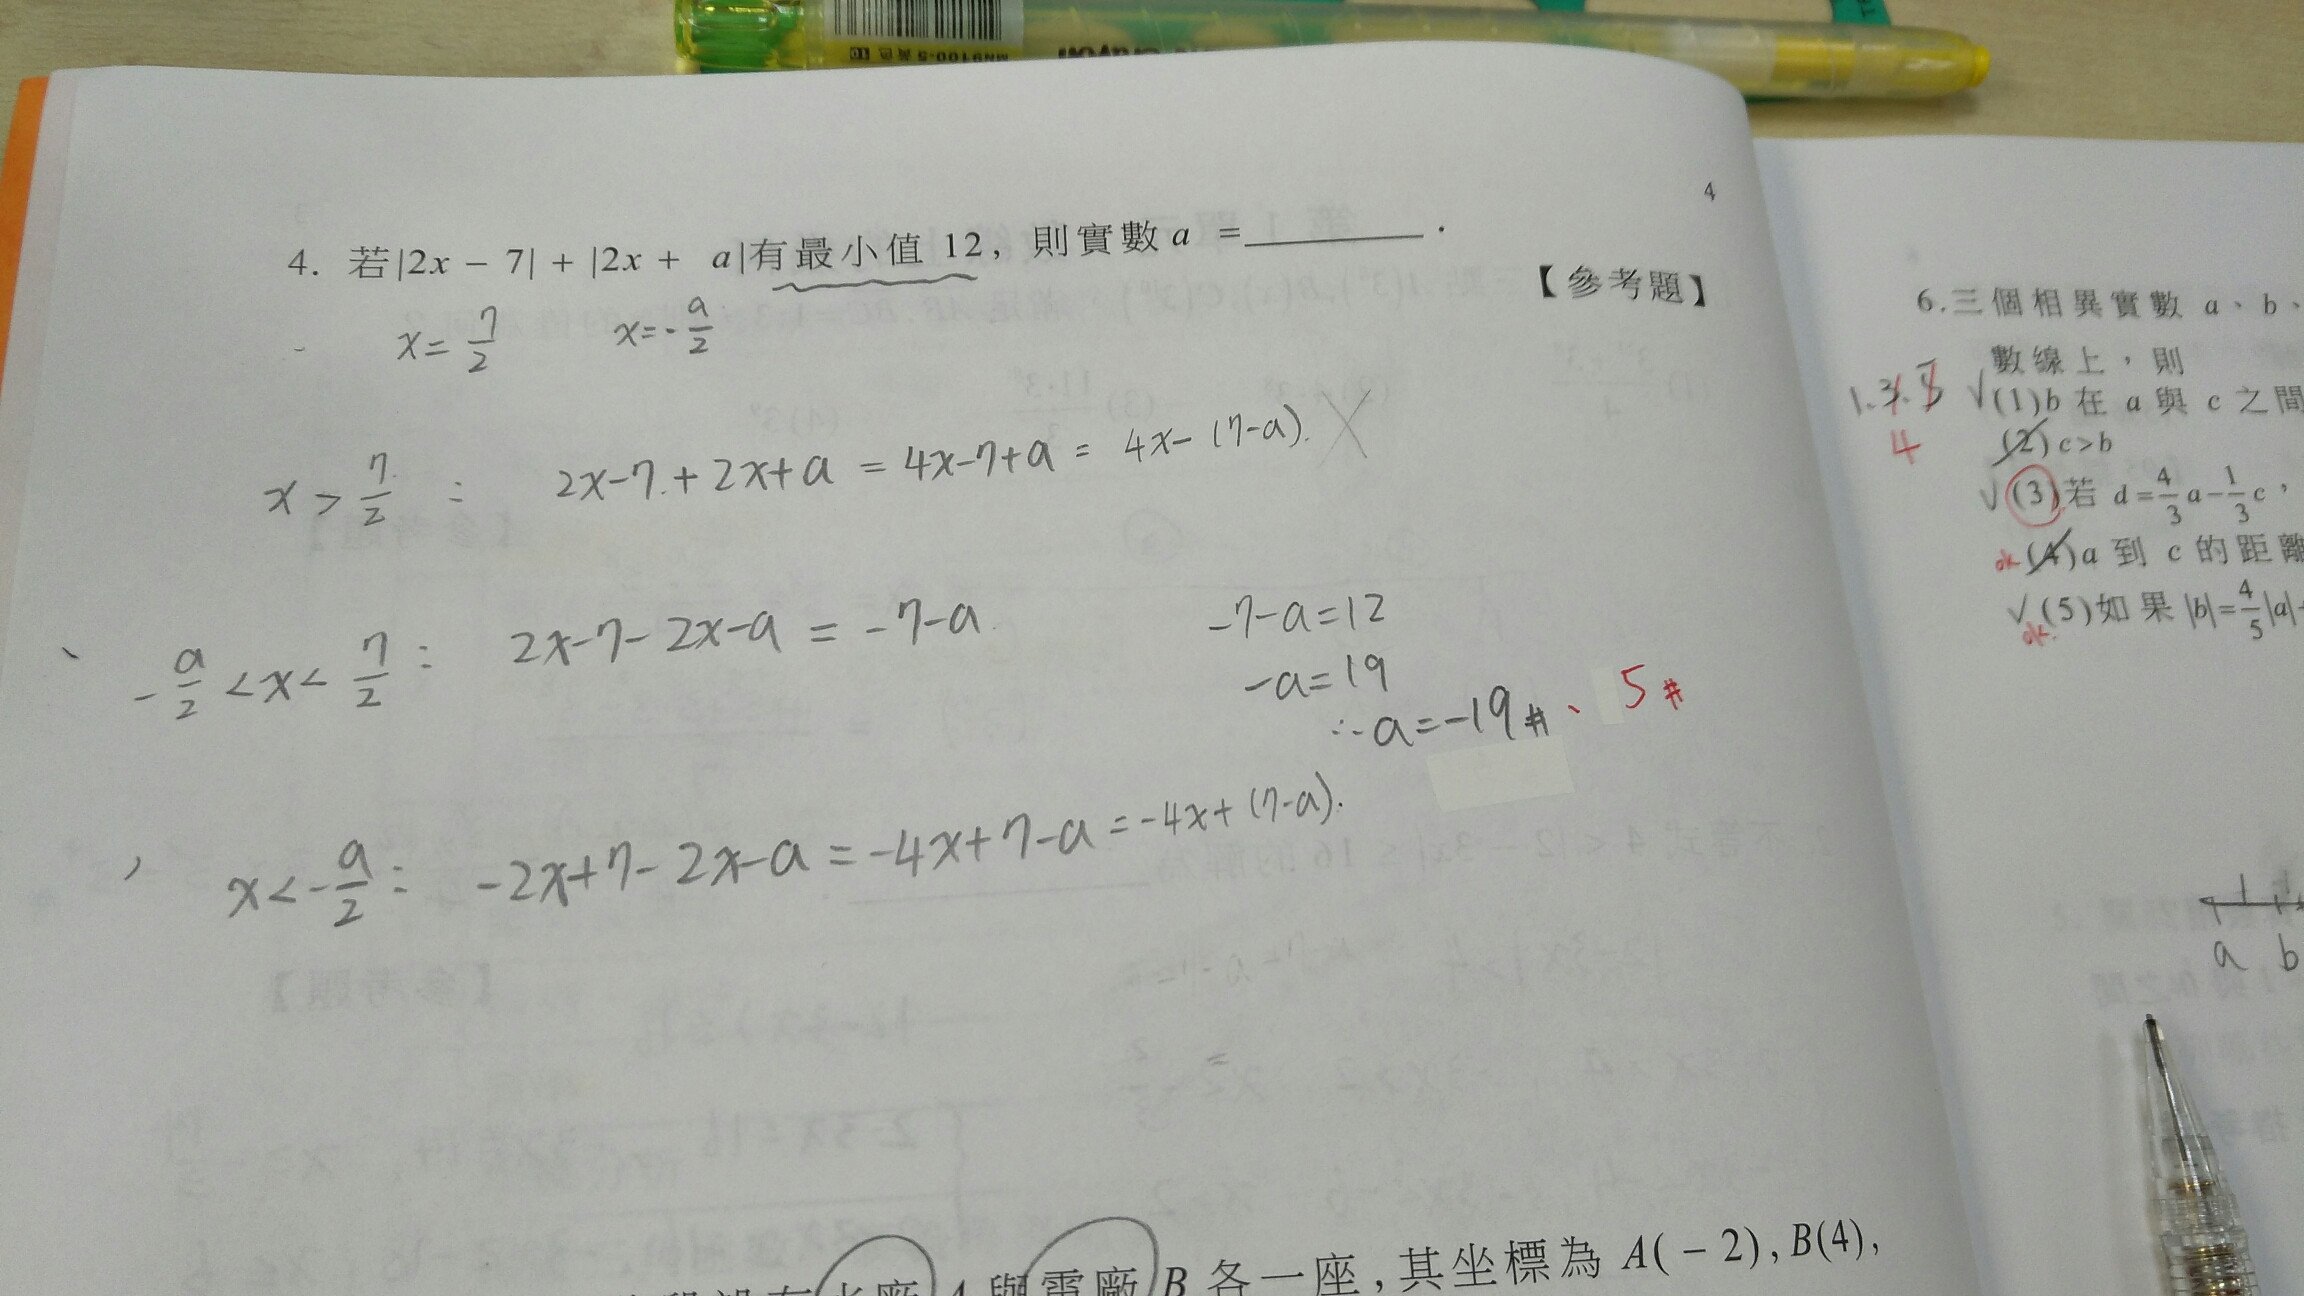 MN9100-5 黃色 10
4
4. 若|2x − 7| + |2x + a|有最小值 12, 則實數 a = ________ .
【參考題】
x = 7/2 x = - a/2
x > 7/2 : 2x-7+2x+a = 4x-7+a = 4x-(7-a). X
- a/2 < x < 7/2 : 2x-7-2x-a = -7-a
-7-a=12
-a=19
∴a=-19# 、5#
x < - a/2 : -2x+7-2x-a = -4x+7-a = -4x+(7-a).
B 各一座,其坐標為 A(−2), B(4),
6.三個相異實數 a、b、
數線上,則
1.3.5 √(1)b 在 a 與 c 之間
4 (2)c>b
√(3)若 d=4/3 a−1/3 c,
ok (4)a 到 c 的距離
√(5)如果 |b|=4/5|a|+
ok.
a b